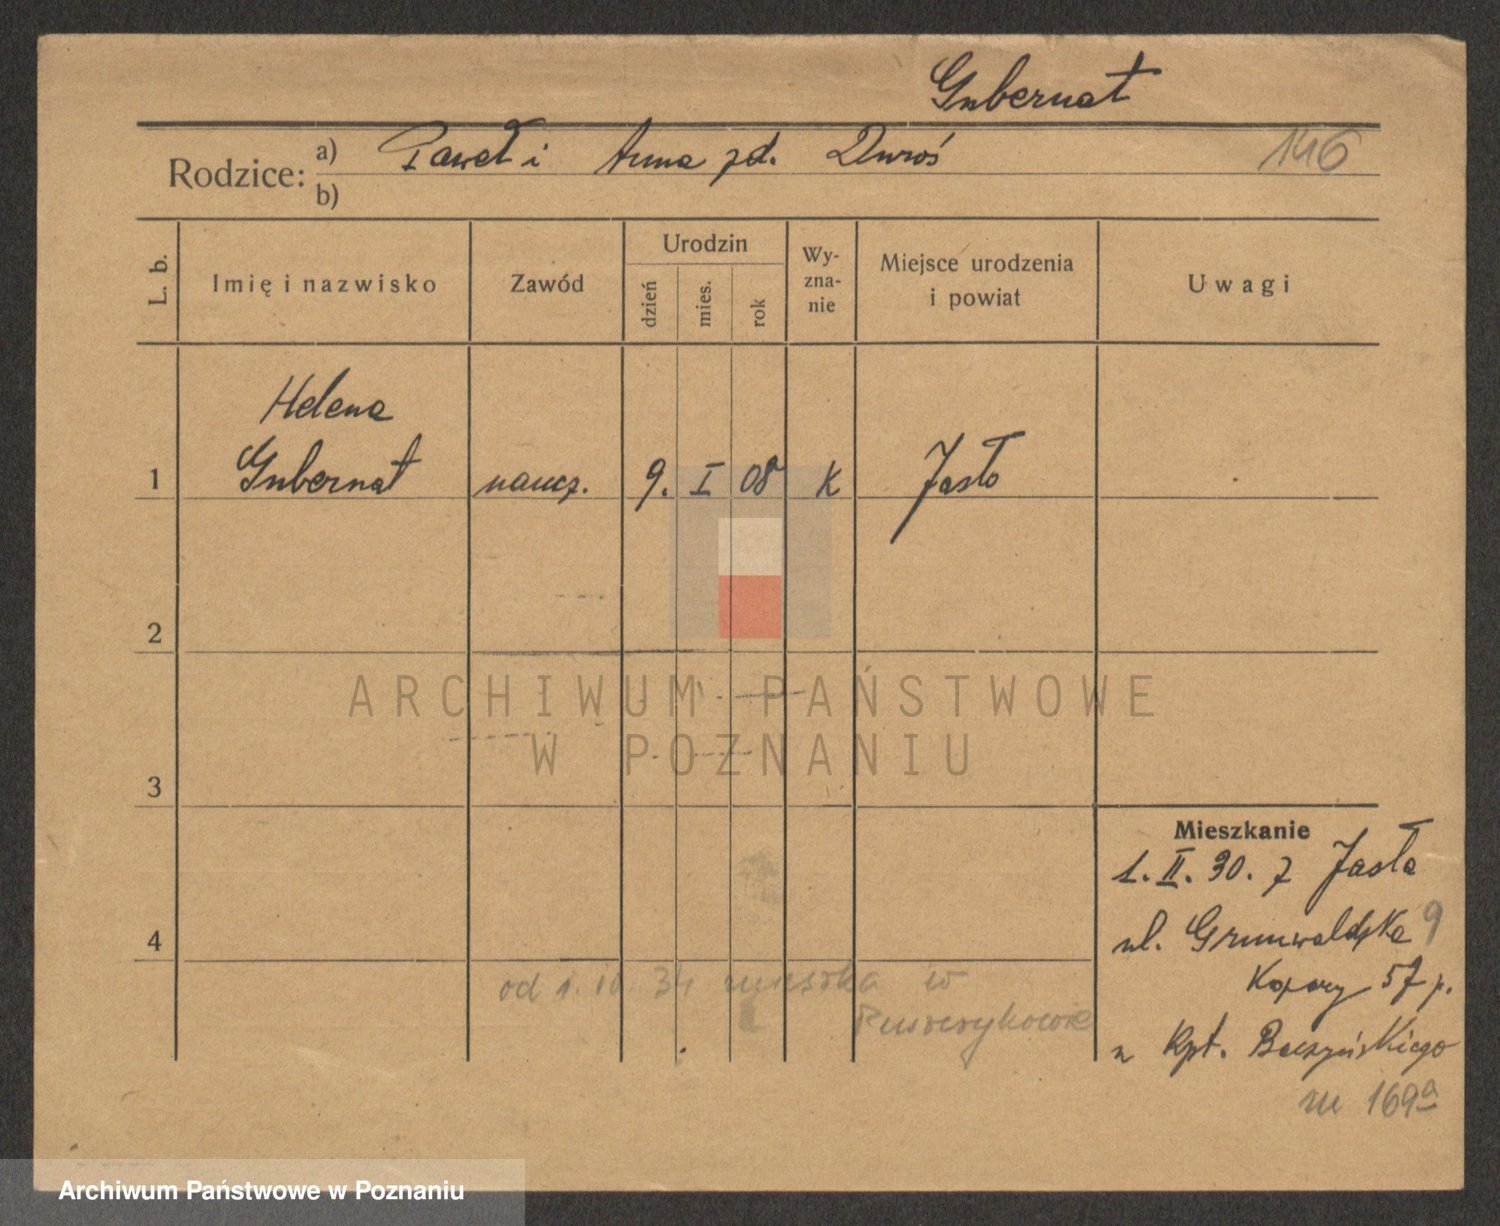 Gubernat
Rodzice: a) Paweł i Anna zd. Duroś 146
b)
L. b. Imię i nazwisko Zawód Urodzin dzień mies. rok Wy-zna-nie Miejsce urodzenia i powiat Uwagi
Helena
1 Gubernat naucz. 9. I 08 K Jasło
2
ARCHIWUM PAŃSTWOWE
W POZNANIU
3
Mieszkanie
1. II. 30. z Jasła
4 ul. Grunwaldzka 9
od 1. 10. 34 mieszka w
Koszary 57 p.
Puszczykowie
u Kpt. Baczyńskiego
m 169a
Archiwum Państwowe w Poznaniu